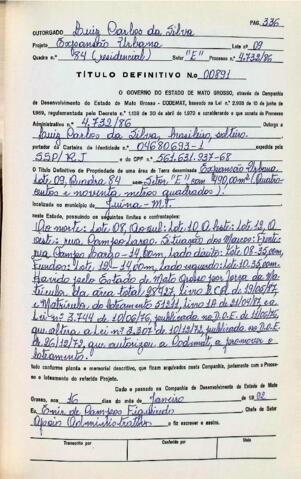 PAG. 336
OUTORGADO Luiz Carlos da Silva
Projeto Expansão Urbana Lote nº 09
Quadra nº 84 (residencial) Setor "E" Processo nº 4.732/86
TÍTULO DEFINITIVO No 00891
O GOVERNO DO ESTADO DE MATO GROSSO, através da Companhia
de Desenvolvimento do Estado de Mato Grosso - CODEMAT, baseado na Lei nº 2.908 de 10 de junho
1969, regulamentada pelo Decreto nº 1.138 de 30 de abril de 1970 e considerando o que consta do Processo
Administrativo nº 4.732/86
a Luiz Carlos da Silva, brasileiro, solteiro,
portador da Carteira de Identidade nº 04680693-1 expedida pela
SSP/RJ e do CPF nº 561.631.937-68
O Título Definitivo de Propriedade de uma área de Terra denominada Expansão Urbana
Lote 09, Quadra 84 Setor "E" com 490,00m² (Quatro-
centos e noventa metros quadrados)
localizada no município de Juína - MT.
neste Estado, possuindo os seguintes limites e confrontações:
Ao norte: Lote 08, Ao sul: Lote 10, A leste: Lote 12, A
oeste: rua Campo Largo. Situação dos Marcos: Frente:
rua Campo Largo - 14,00m, Lado direito: Lote 08 - 35,00m,
Fundos: Lote 12 - 14,00m, Lado esquerdo: Lote 10 - 35,00m.
Havido pelo Estado de Mato Grosso por força da Ma-
tricula da área total
e Matricula do Loteamento
Lei nº 3.744 de 10/06/76, publicada no D.O.E. de 11/06/76,
que altera a Lei nº 3.307 de 10/12/72, publicada no D.O.E.
de 26/12/72, que autorizou a Codemat, a promover o
Loteamento.
tudo conforme planta e memorial descritivo, que ficam arquivados nesta Companhia, juntamente com o Proces-
so e loteamento do referido Projeto.
Dado e passado na Companhia de Desenvolvimento do Estado de Mato
Grosso, aos 16 dias do mês de Janeiro de
Eu Enir de Campos Figueiredo Chefe do Setor
Apoio Administrativo o fiz escrever e assino.
Transcrito por
Conferido por
Visto